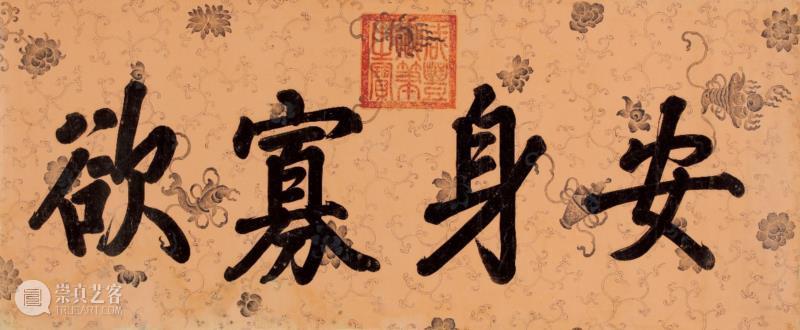 咸豐御筆之寶
安身寡欲
崇真艺客
TRUEART.COM